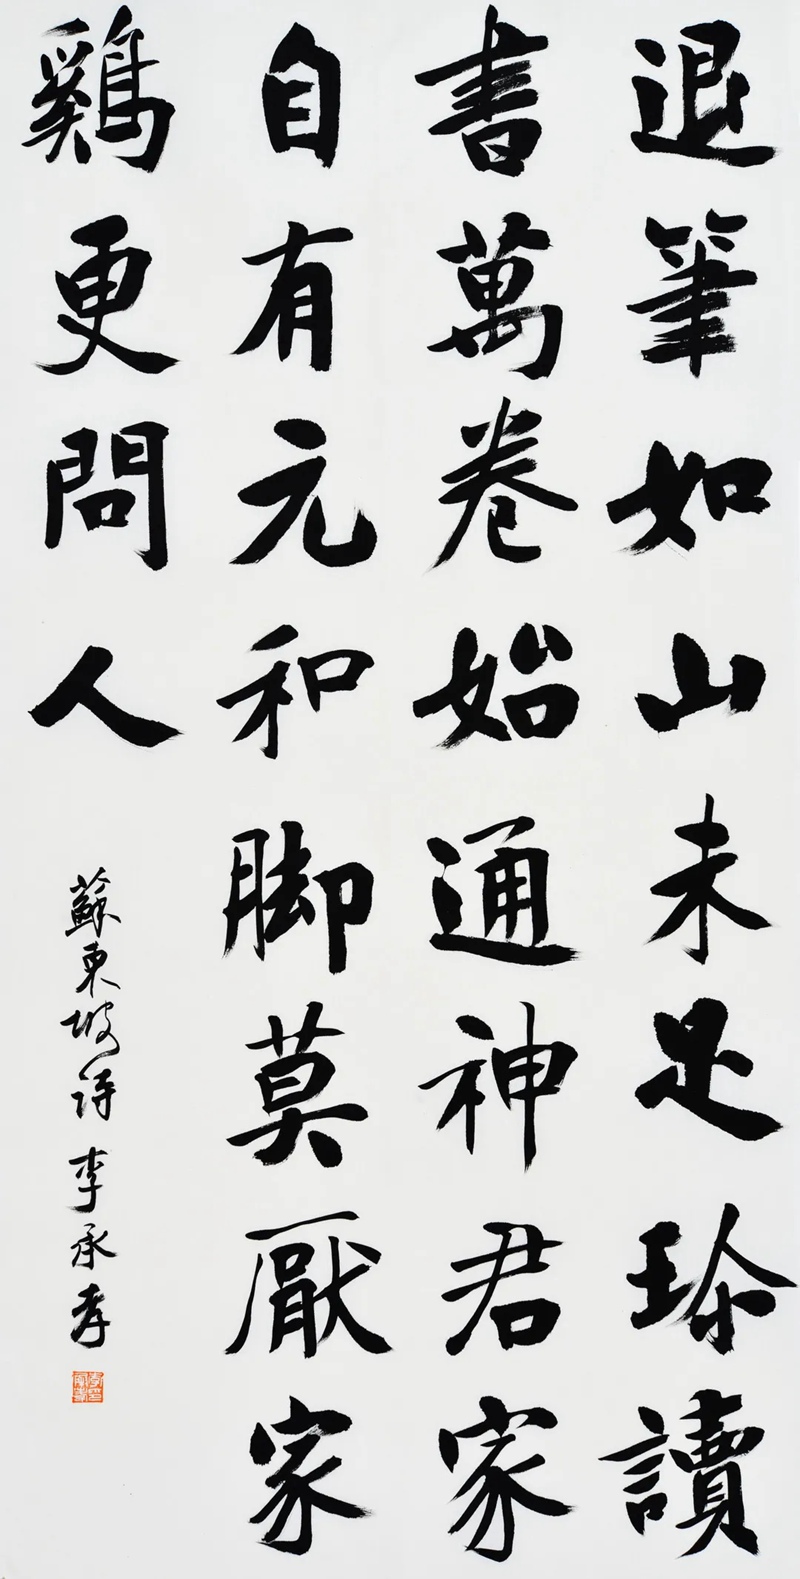 退筆如山未足珎讀
書萬卷始通神君家
自有元和脚莫厭家
鷄更問人
蘇東坡詩李承孝